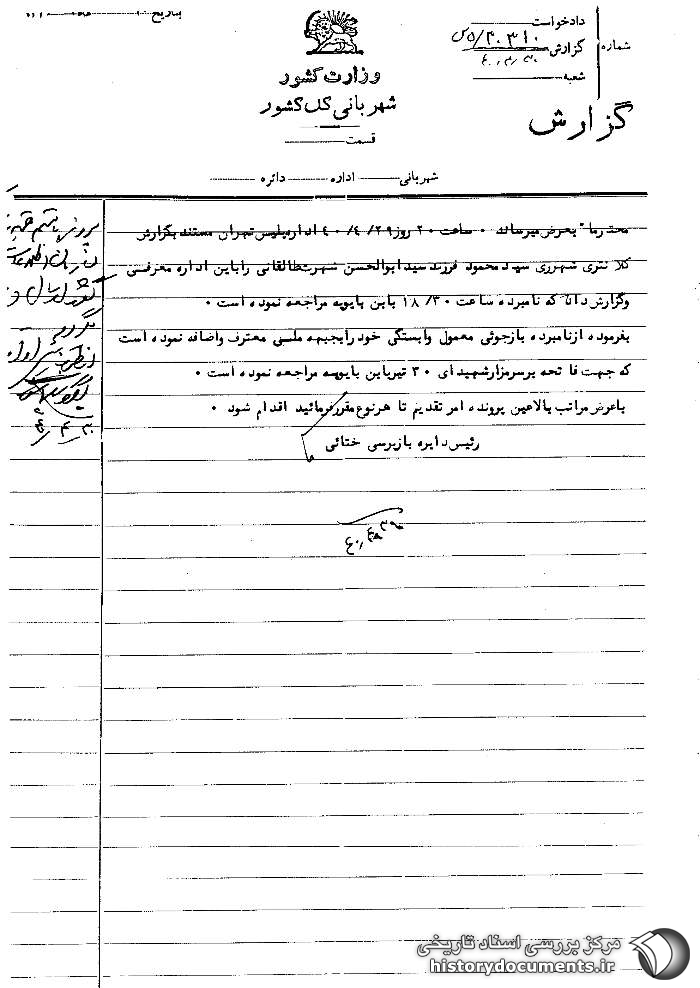 بتاریخ
دادخواست
شماره
گزارش ۲۰۳۱۰/۵س
۴۰/۴/۳۰
شعبه
وزارت کشور
شهربانی کل کشور
قسمت
گزارش
شهربانی اداره دائره
محترما" بعرض میرساند ۰ ساعت ۲۰ روز ۲۹/ ۴/ ۴۰ اداره پلیس تهران مستند بگزارش
کلانتری شهرری سید محمود فرزند سید ابوالحسن شهرت طالقانی را باین اداره معرفی
وگزارش داده که نامبرده ساعت ۳۰/ ۱۸ باین بابویه مراجعه نموده است ۰
بفرموده ازنامبرده بازجوئی معمول وابستگی خود رابجبهه ملی معترف واضافه نموده است
که جهت فاتحه برسرمزارشهدای ۳۰ تیرباین بابویه مراجعه نموده است ۰
باعرض مراتب بالاعین پرونده امر تقدیم تا هرنوع مقررفرمائید اقدام شود ۰
رئیس دایره بازپرسی ختائی
مرکز بررسی اسناد تاریخی
historydocuments.ir